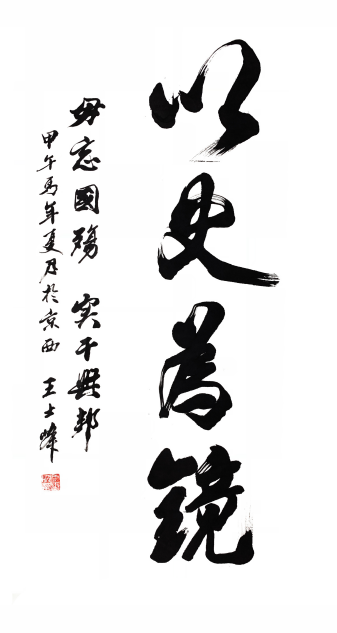 以史為鏡
毋忘國殤 实干興邦
甲午馬年夏月於京西 王士峰